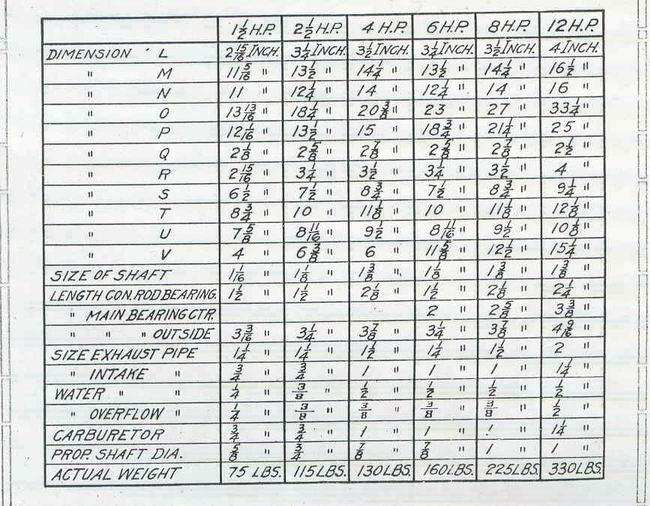 1 1/2 H.P. 2 1/2 H.P. 4 H.P. 6 H.P. 8 H.P. 12 H.P.
DIMENSION " L 2 15/16 INCH. 3 1/4 INCH. 3 1/2 INCH. 3 1/4 INCH. 3 1/2 INCH. 4 INCH.
" M 11 5/16 " 13 1/2 " 14 1/4 " 13 1/2 " 14 1/4 " 16 1/2 "
" N 11 " 12 1/4 " 14 " 12 1/4 " 14 " 16 "
" O 13 13/16 " 18 1/4 " 20 3/8 " 23 " 27 " 33 1/4 "
" P 12 1/16 " 13 1/2 " 15 " 18 3/4 " 21 1/4 " 25 "
" Q 2 1/8 " 2 5/8 " 2 7/8 " 2 5/8 " 2 7/8 " 2 1/2 "
" R 2 15/16 " 3 1/4 " 3 1/2 " 3 1/4 " 3 1/2 " 4 "
" S 6 1/2 " 7 1/2 " 8 3/4 " 7 1/2 " 8 3/4 " 9 1/4 "
" T 8 3/4 " 10 " 11 1/8 " 10 " 11 1/8 " 12 1/8 "
" U 7 5/8 " 8 11/16 " 9 1/2 " 8 11/16 " 9 1/2 " 10 1/8 "
" V 4 " 6 3/8 " 6 " 11 5/8 " 12 1/2 " 15 1/4 "
SIZE OF SHAFT 1 1/16 " 1 1/8 " 1 3/8 " 1 1/8 " 1 3/8 " 1 3/8 "
LENGTH CON. ROD BEARING. 1 1/2 " 1 1/2 " 2 1/8 " 1 1/2 " 2 1/8 " 2 1/4 "
" MAIN BEARING CTR. 2 " 2 5/8 " 3 3/8 "
" " " OUTSIDE 3 3/16 " 3 1/4 " 3 7/8 " 3 1/4 " 3 7/8 " 4 9/16 "
SIZE EXHAUST PIPE 1 1/4 " 1 1/4 " 1 1/2 " 1 1/4 " 1 1/2 " 2 "
" INTAKE " 3/4 " 3/4 " 1 " 1 " 1 " 1 1/4 "
WATER " " 1/4 " 3/8 " 1/2 " 1/2 " 1/2 " 1/2 "
" OVERFLOW " 1/4 " 3/8 " 3/8 " 3/8 " 3/8 " 1/2 "
CARBURETOR 3/4 " 3/4 " 1 " 1 " 1 " 1 1/4 "
PROP. SHAFT DIA. 5/8 " 3/4 " 7/8 " 7/8 " 1 " 1 "
ACTUAL WEIGHT 75 LBS. 115 LBS. 130 LBS. 160 LBS. 225 LBS. 330 LBS.